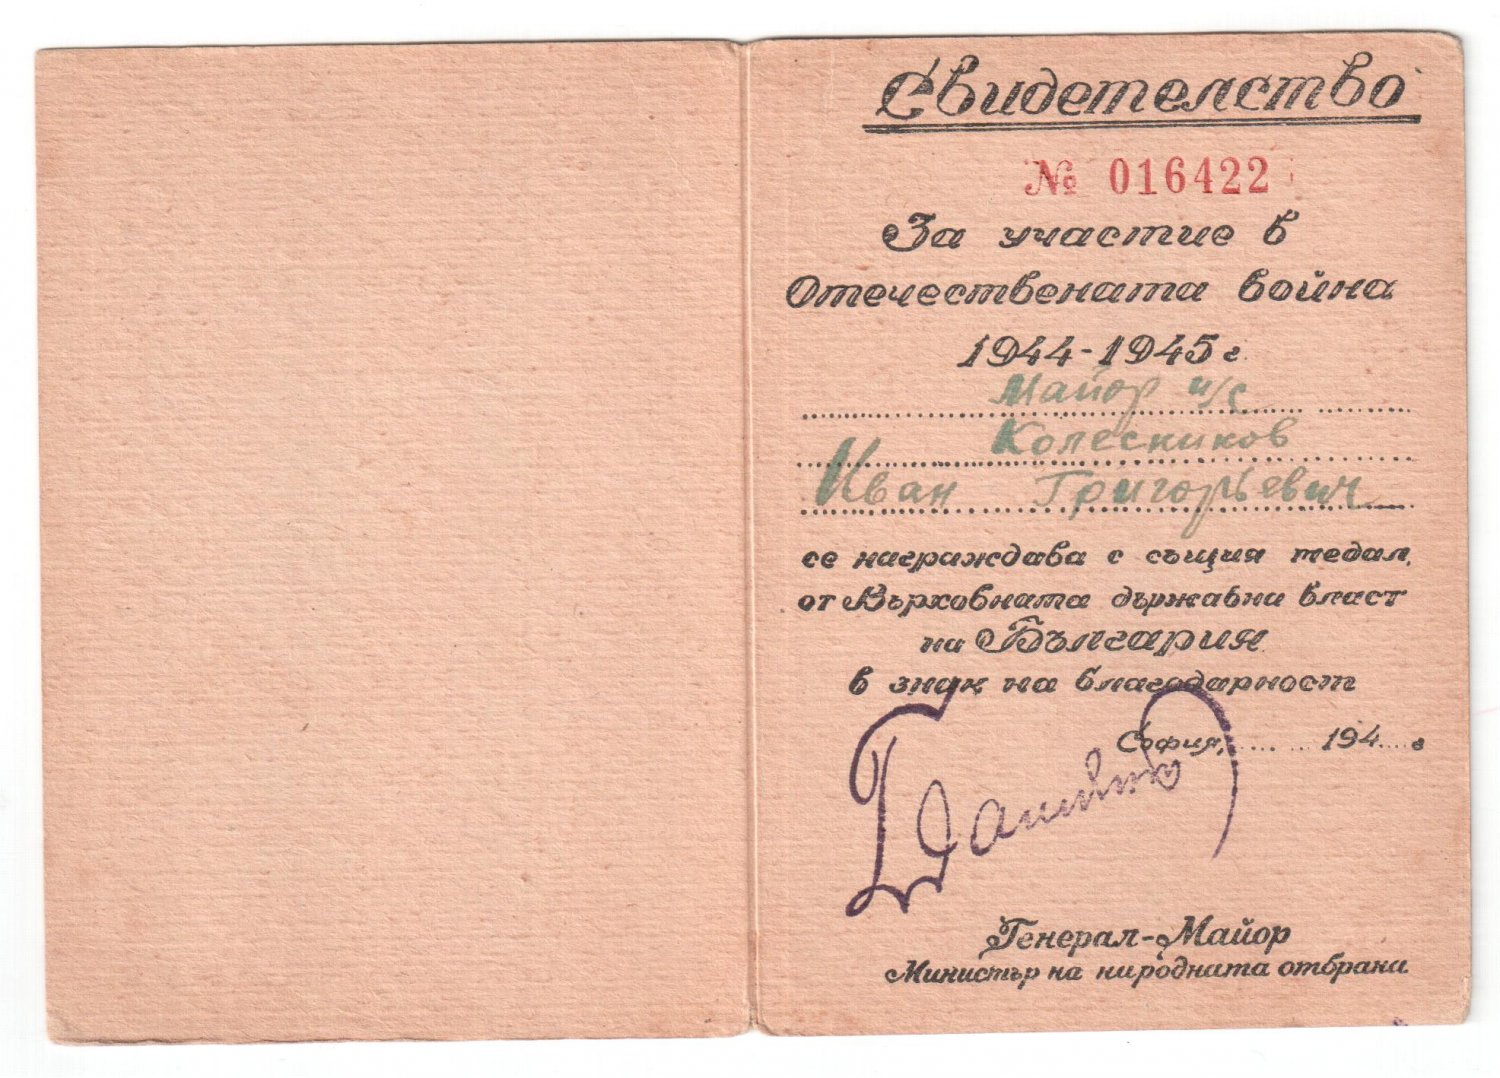 Свидетелство
№ 016422
За участие в
Отечествената война
1944-1945 г.
Майор и/с
Колесников
Иван Григорьевич
се награждава с същия медал,
от Върховната държавна власт
на България
в знак на благодарност
София, ..... 194... г
Генерал-Майор
Министър на народната отбрана